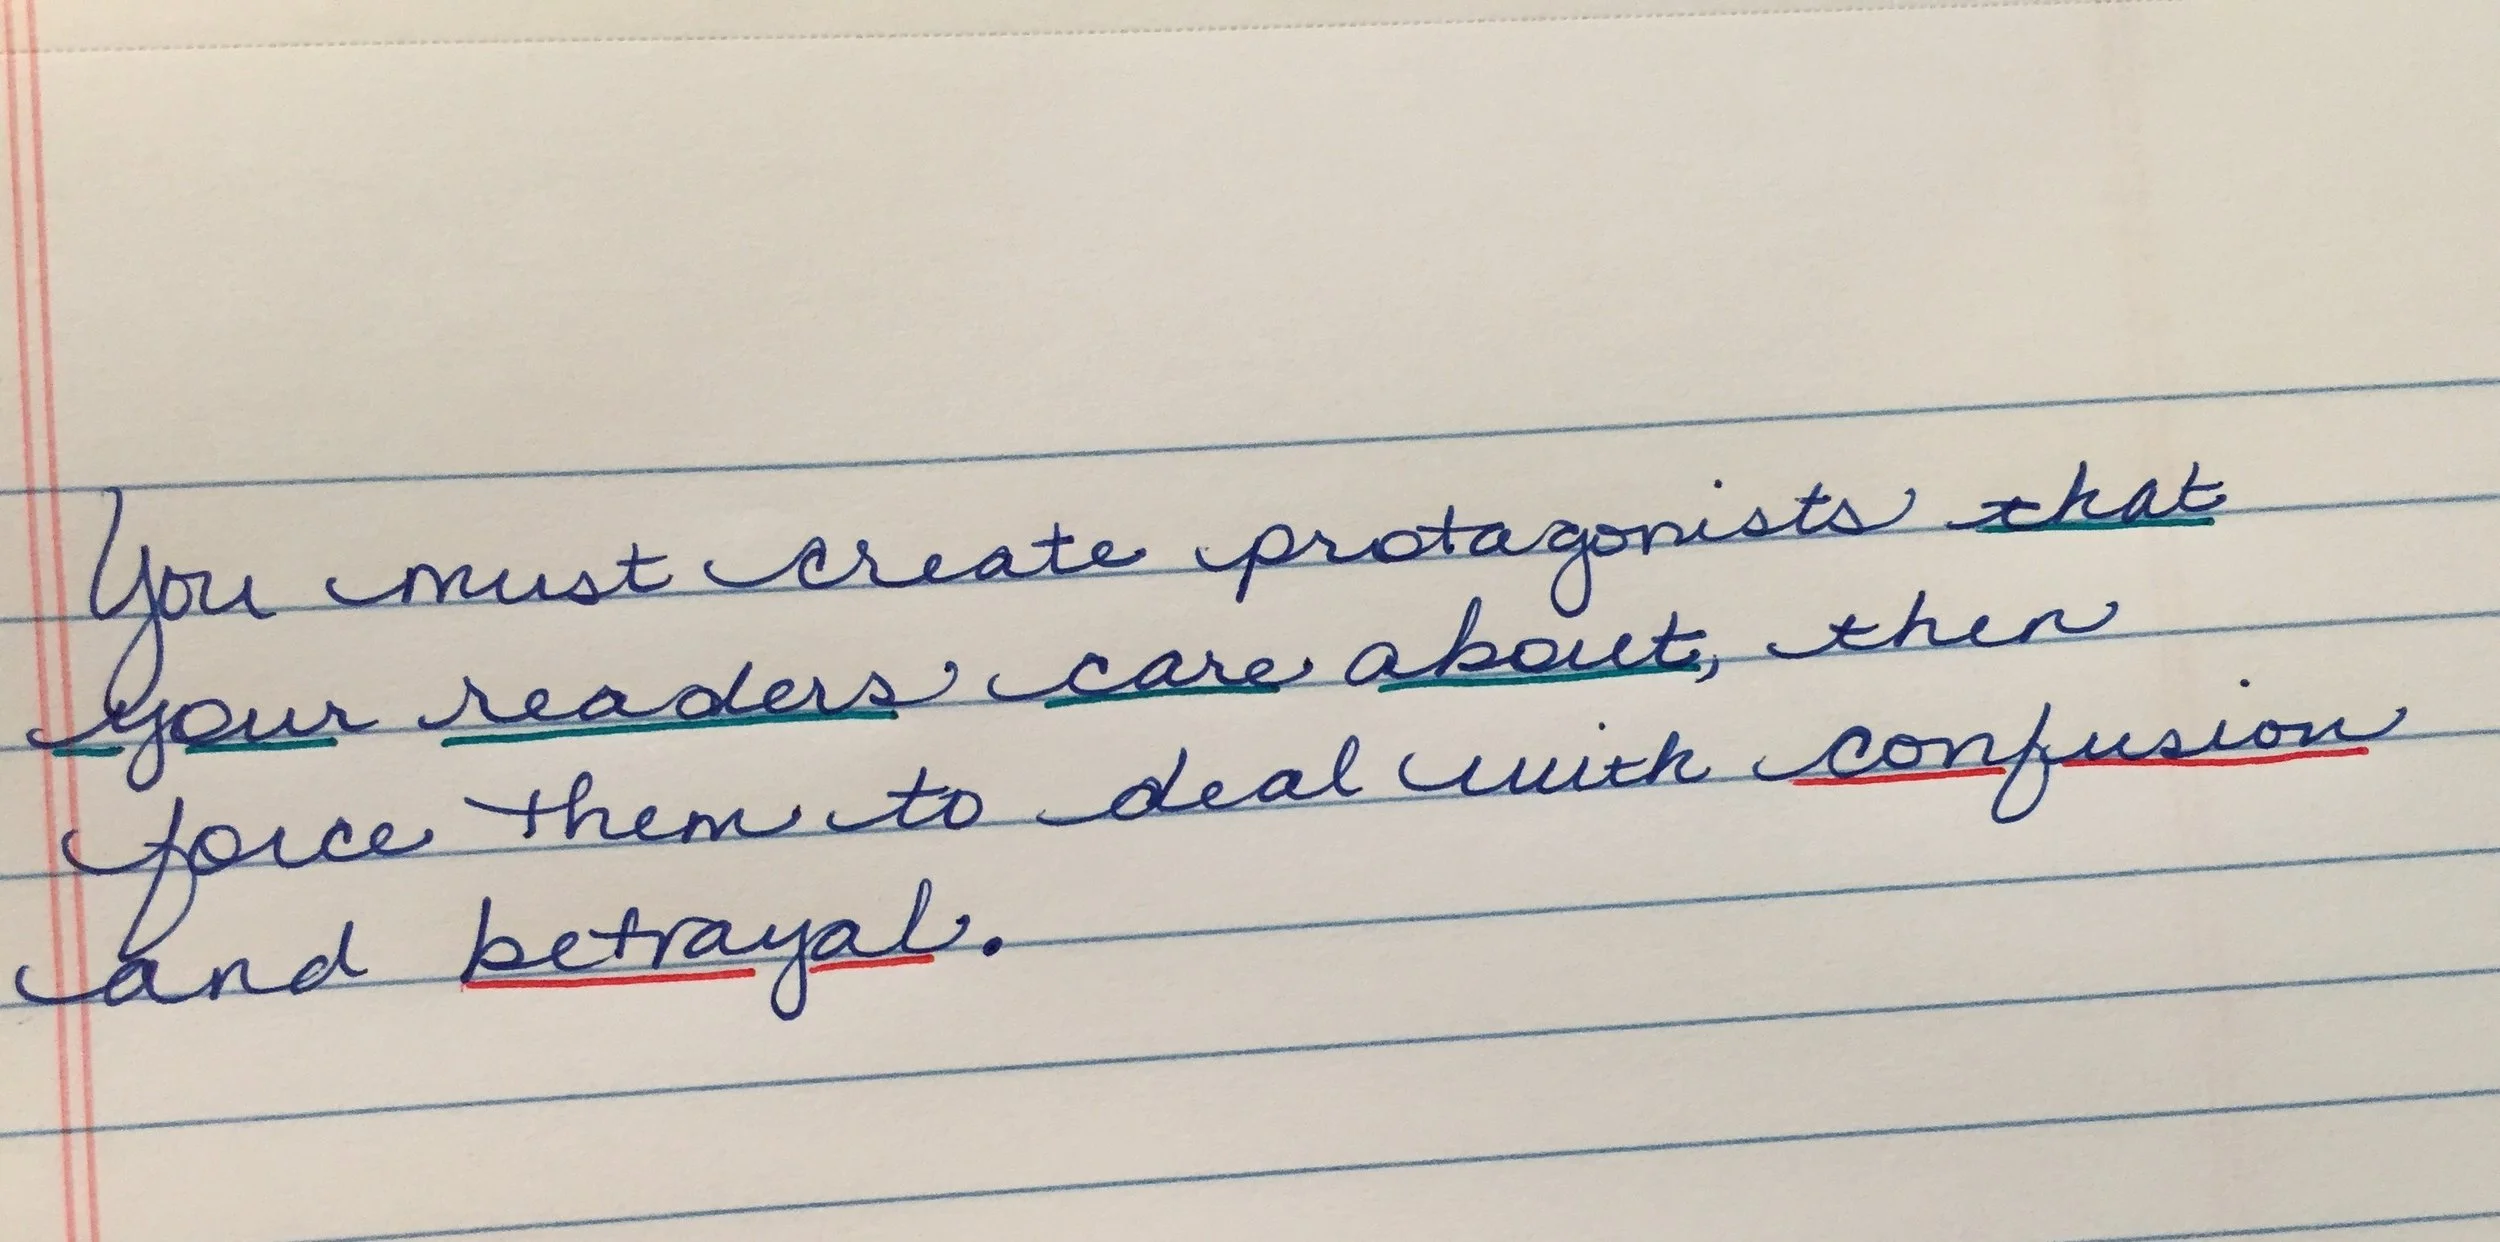 You must create protagonists that
your readers care about, then
force them to deal with confusion
and betrayal.